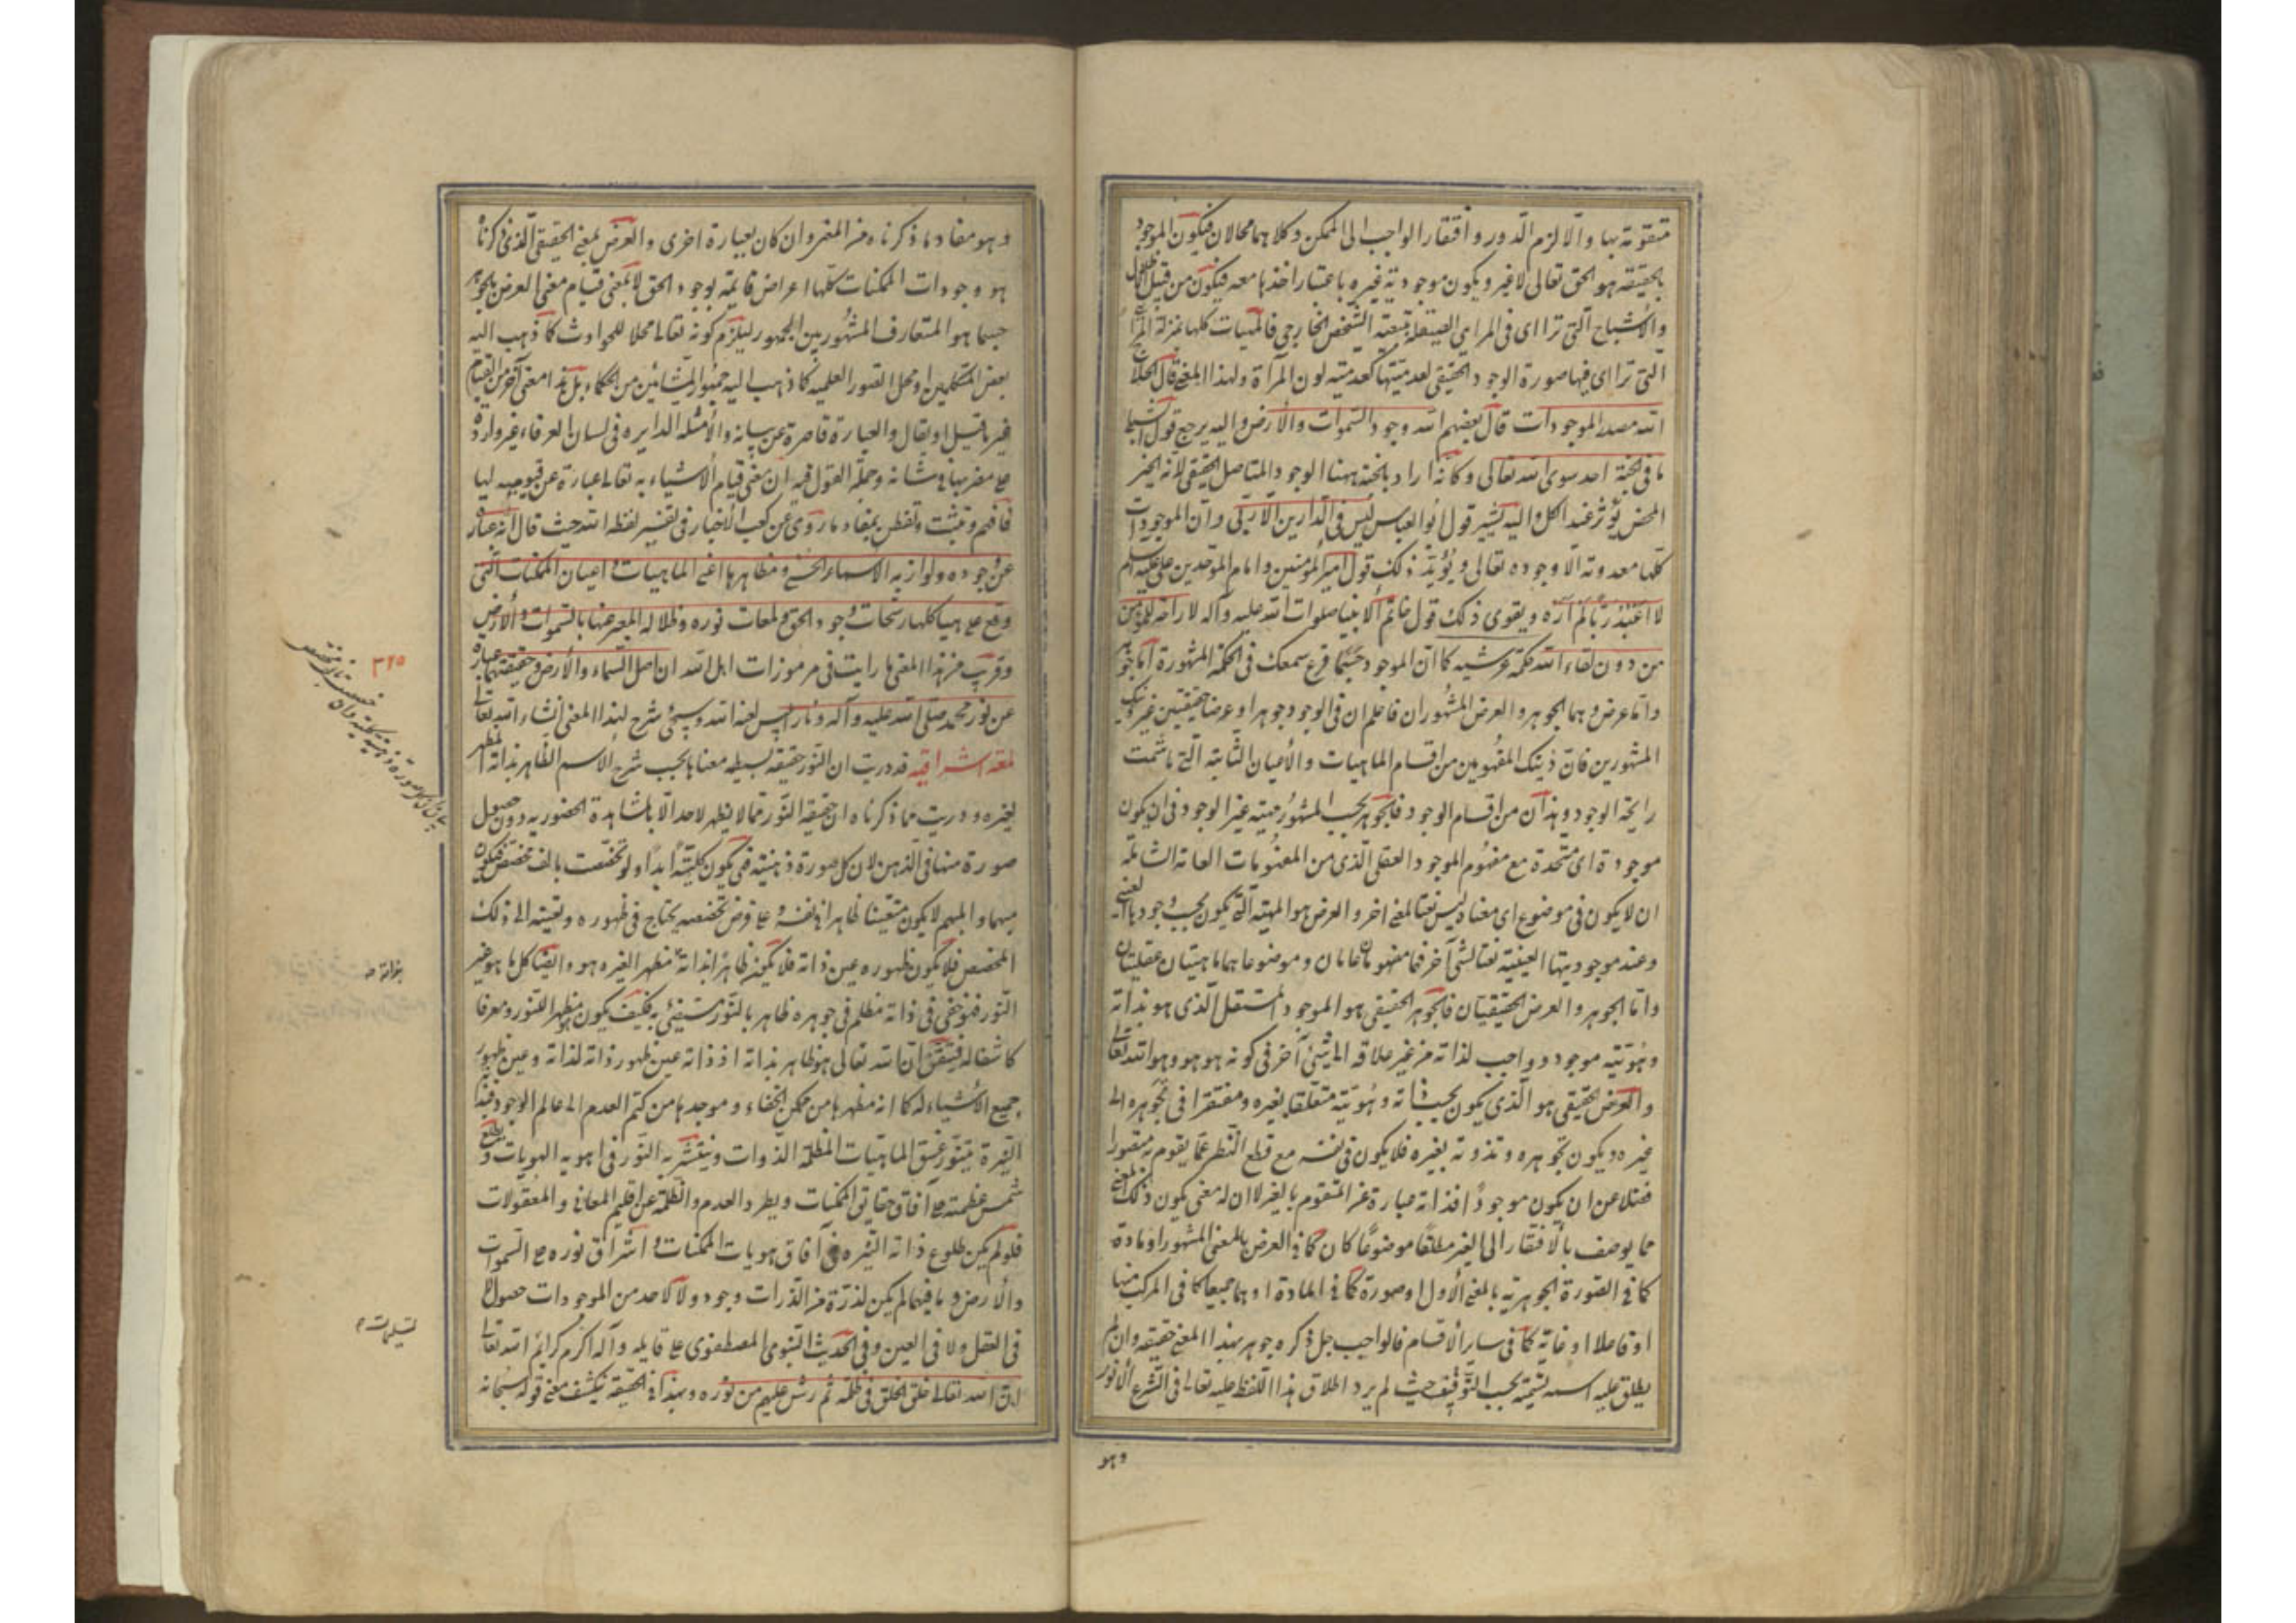 متقومة بها والا لزم الدور وافتقار الواجب الى الممكن وكلاهما محالان فيكون الموجود
بالحقيقة هو الحق تعالى لا غير ويكون موجودية غيره باعتبار اخذها معه فيكون من قبيل الظلال
والاشباح التى تراأى فى المراى الصيقلة بتبعية الشخص الخارجى فالمهيات كلها بمنزلة المرآة
التى تراأى فيها صورة الوجود الحقيقى لعدميتها كعدمية لون المرآة ولهذا المعنى قال الحلاج
الله مصدر الموجودات قال بعضهم الله وجود السموات والارض واليه يرجع قول الشبلى
ما فى الجنة احد سوى الله تعالى وكانه اراد بالجنة ههنا الوجود المتاصل الحقيقى لانه الخير
المحض يؤثر عند الكل واليه يشير قول ابو العباس ليس فى الدارين الا ربى وان الموجودات
كلها معدومة الا وجوده تعالى ويؤيد ذلك قول امير المؤمنين وامام الموحدين على عليه السلام
لا اعبد ربا لم اره ويقوى ذلك قول خاتم الانبيا صلوات الله عليه وآله لا راحة للمؤمن
من دون لقاء الله حكمة عرشيه كما ان الموجود حسبما قرع سمعك فى الحكمة المشهورة اما جوهر
واما عرض وهما الجوهر والعرض المشهوران فاعلم ان فى الوجود جوهرا وعرضا حقيقيين غير ذينك
المشهورين فان ذينك المفهومين من اقسام الماهيات والاعيان الثابتة التى ما شمت
رايحة الوجود وهذان من اقسام الوجود فالجوهر بحسب المشهور مهية غير الوجود فى ان يكون
موجودة اى متحدة مع مفهوم الموجود العقلى الذى من المفهومات العامة الشاملة
ان لا يكون فى موضوع اى معناه ليس نعتا لمعنى اخر والعرض هو المهية التى يكون بحسب وجودها العينى
وعند موجوديتها العينية نعتا لشئ آخر فهما مفهومان عامان وموضوعاهما ماهيتان عقليتان
واما الجوهر والعرض الحقيقيان فالجوهر الحقيقى هو الموجود المستقل الذى هو بذاته
وهويته موجود وواجب لذاته من غير علاقه الى شئ آخر فى كونه هو هو وهو الله تعالى
والعرض الحقيقى هو الذى يكون بحسب ذاته وهويته متعلقا بغيره ومفتقرا فى تجوهره الى
غيره ويكون تجوهره وتذوته بغيره فلا يكون فى نفسه مع قطع النظر عما يقوم به متصورا
فضلا عن ان يكون موجودا اذ ذاته عبارة عن المتقوم بالغير لا ان له معنى يكون ذلك المعنى
مما يوصف بالافتقار الى الغير مطلقا موضوعا كان كما فى العرض بالمعنى المشهور او مادة
كما فى الصورة الجوهرية بالمعنى الاول او صورة كما فى المادة او هما جميعا كما فى المركب منها
او فاعلا او غاية كما فى ساير الاقسام فالواجب جل ذكره جوهر بهذا المعنى حقيقه وان لم
يطلق عليه اسمه تسمية بحسب التوقيف حيث لم يرد اطلاق هذا اللفظ عليه تعالى فى الشرع الانور
وهو
وهو مفاد ما ذكرناه من المعنى وان كان بعبارة اخرى والعرض بمعنى الحقيقى الذى ذكرناه
هو وجودات الممكنات كلها اعراض قايمة بوجود الحق لا بمعنى قيام معنى العرض بالجوهر
حسبما هو المتعارف المشهور بين الجمهور ليلزم كونه تعالى محلا للحوادث كما ذهب اليه
بعض المتكلمين او محل الصور العلميه كما ذهب اليه جمهور المشائين من الحكماء بل هذا معنى آخر من القيام
غير ما قيل او يقال والعبارة قاصرة عن بيانه والامثله الدايره فى لسان العرفاء غير واردة
على مضربها فى شانه وجملة القول فيه ان معنى قيام الاشياء به تعالى عبارة عن قيوميته لها
فافهم وتثبت وتفطن بمفاد ما روى عن كعب الاخبار فى تفسير لفظ الله حيث قال انه عبارة
عن وجوده ولوازمه الاسماء الحسنى ومظاهرها اعنى الماهيات واعيان الممكنات التى
وقع على هياكلها رشحات وجود الحق ولمعات نوره وظلاله المعبر عنها بالسموات والارض
وقريب من هذا المعنى ما رايت فى مرموزات اهل الله ان اصل السماء والارض وحقيقتهما عبارة
عن نور محمد صلى الله عليه وآله ونار ابليس لعنه الله وسيجئ شرح لهذا المعنى انشاء الله تعالى
لمعة اشراقيه قد دريت ان النور حقيقة بسيطه معناها بحسب شرح الاسم الظاهر بذاته المظهر
لغيره ودريت مما ذكرناه ان حقيقة النور مما لا يظهر لاحد الا بالمشاهدة الحضوريه دون حصول
صورة منها فى الذهن لان كل صورة ذهنية فهى يكون كلية ابدا ولو تخصصت بالف مخصص فيكون
مبهما والمبهم لا يكون متعينا ظاهرا فى نفسه وعلى فرض تخصصه يحتاج فى ظهوره وتعينه الى ذلك
المخصص فلا يكون ظهوره عين ذاته فلا يكون ظاهرا بذاته مظهرا لغيره هو وايضا كل ما هو غير
النور فهو خفى فى ذاته مظلم فى جوهره ظاهر بالنور مستضئ به فكيف يكون مظهرا للنور ومعرفا
كاشفا له فتحقق ان الله تعالى هو ظاهر بذاته اذ ذاته عين ظهور ذاته لذاته وعين ظهور
جميع الاشياء له كما انه مظهرها من مكمن الخفاء وموجدها من كتم العدم الى عالم الوجود فبذاته
النيرة يتنور غسق الماهيات المظلمة الذوات وينتشر به النور فى اهوية الهويات ويطلع
شمس عظمته على آفاق حقايق الممكنات ويطرد العدم والظلمة عن اقليم المعانى والمعقولات
فلو لم يكن طلوع ذاته النيره فى آفاق هويات الممكنات واشراق نوره على السموات
والارض وما فيهما لم يكن لذرة من الذرات وجود ولا لاحد من الموجودات حصول لا
فى العقل ولا فى العين وفى الحديث النبوى المصطفوى على قايله وآله اكرم كرايم الله تعالى
ان الله تعالى خلق الخلق فى ظلمة ثم رش عليهم من نوره وبهذا فى الحقيقة ينكشف معنى قوله سبحانه
٣٢٥
بذاته صه
تسليمات